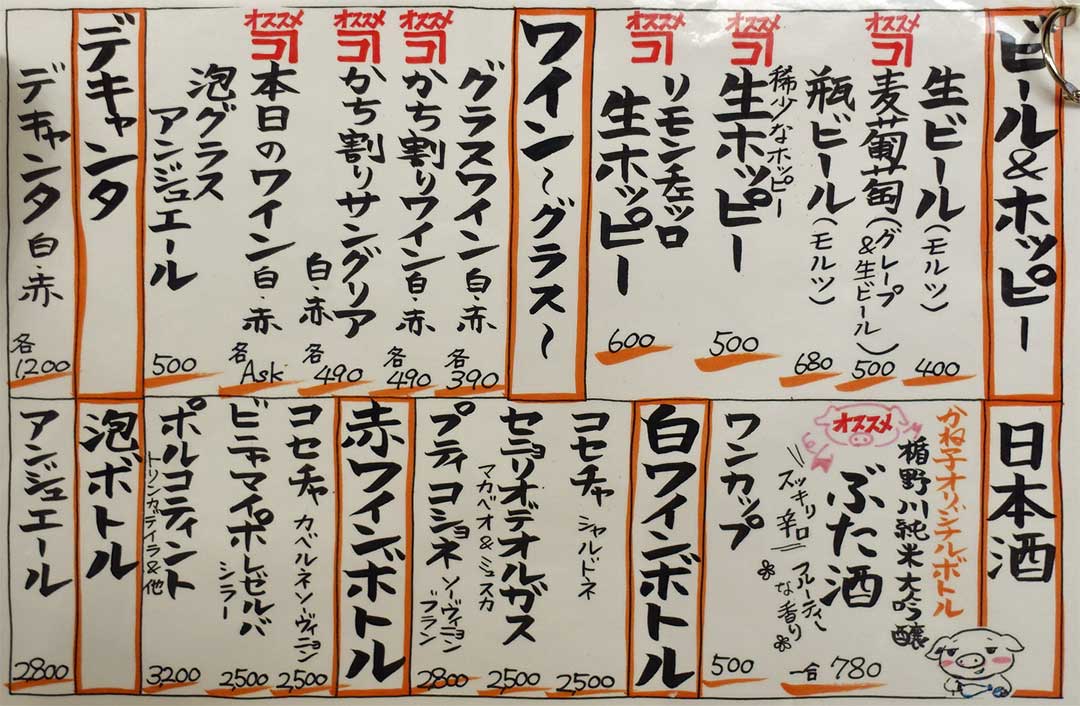 ビール&ホッピー
生ビール(モルツ)
400
オススメ
麦葡萄(グレープ&生ビール)
500
瓶ビール(モルツ)
680
稀少なホッピー
オススメ
生ホッピー
500
オススメ
リモンチェッロ
生ホッピー
600
ワイン〜グラス〜
グラスワイン 白・赤
各390
オススメ
かち割りワイン 白・赤
各490
オススメ
かち割りサングリア
白・赤
各490
オススメ
本日のワイン 白・赤
各Ask
泡グラス
アンジュエール
500
デキャンタ
デキャンタ 白・赤
各1200
日本酒
かね子オリジナルボトル
楯野川純米大吟醸
オススメ
ぶた酒
スッキリ辛口
フルーティーな香り
一合 780
ワンカップ
500
白ワインボトル
コセチャ シャルドネ
2,500
セニョリオデオルガス
マカベオ&ミュスカ
2,500
プティコショネ ソーヴィニョンブラン
2,800
赤ワインボトル
コセチャ カベルネソーヴィニョン
2,500
ビニャマイポレゼルバ
シラー
2,500
ポルコティント
トリンカディラ&他
3,200
泡ボトル
アンジュエール
2,800